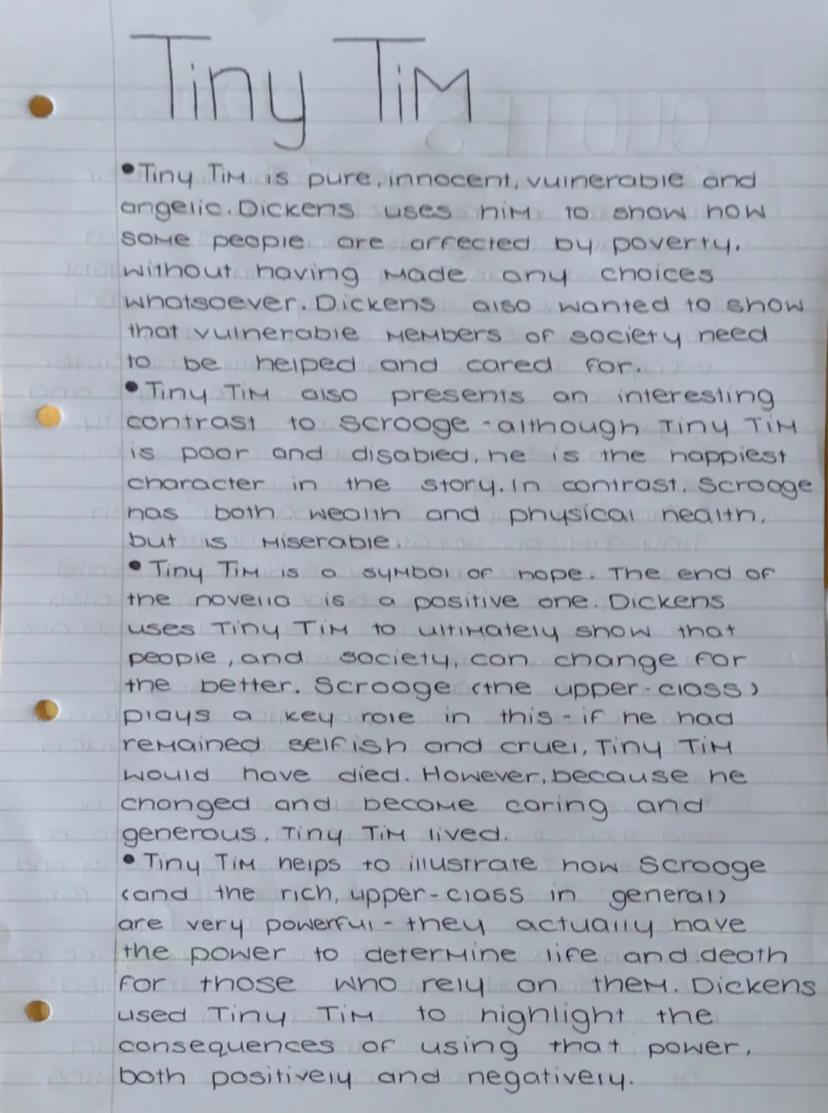 Tiny Tim
• Tiny Tim is pure, innocent, vulnerable and
angelic. Dickens uses him to show how
some people are affected by poverty,
without having made any choices
whatsoever. Dickens also wanted to show
that vulnerable members of society need
to be helped and cared for.
• Tiny Tim also presents an interesting
contrast to Scrooge - although Tiny Tim
is poor and disabled, he is the happiest
character in the story. In contrast, Scrooge
has both wealth and physical health,
but is miserable.
• Tiny Tim is a symbol of hope. The end of
the novella is a positive one. Dickens
uses Tiny Tim to ultimately show that
people, and society, can change for
the better. Scrooge (the upper-class)
plays a key role in this - if he had
remained selfish and cruel, Tiny Tim
would have died. However, because he
changed and became caring and
generous, Tiny Tim lived.
• Tiny Tim helps to illustrate how Scrooge
(and the rich, upper-class in general)
are very powerful - they actually have
the power to determine life and death
for those who rely on them. Dickens
used Tiny Tim to highlight the
consequences of using that power,
both positively and negatively.